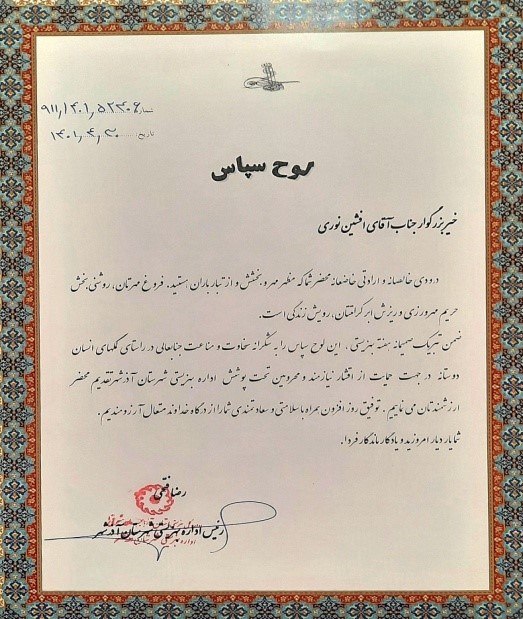 شماره: ۹۱۱/۱۴۰۱/۵۲۳۰۶
تاریخ: ۱۴۰۱/۴/۳۰
لوح سپاس
خیر بزرگوار جناب آقای افشین نوری
درودی خالصانه و ارادتی خاضعانه محضر شما که مظهر مهر و بخشش و از تبار باران هستید. فروغ مهرتان، روشنی بخش
حریم مهرورزی و ریزش ابر کرامتتان، رویش زندگی است.
ضمن تبریک صمیمانه هفته بهزیستی، این لوح سپاس را به شکرانه سخاوت و مناعت جنابعالی در راستای کمکهای انسان
دوستانه در جهت حمایت از اقشار نیازمند و محرومین تحت پوشش اداره بهزیستی شهرستان آذرشهر تقدیم محضر
ارزشمندتان می نماییم. توفیق روز افزون همراه با سلامتی و سعادتمندی شما را از درگاه خداوند متعال آرزومندیم.
شما یار دیار امروزید و یادگار ماندگار فردا.
رضا فقهی
رئیس اداره بهزیستی شهرستان آذرشهر